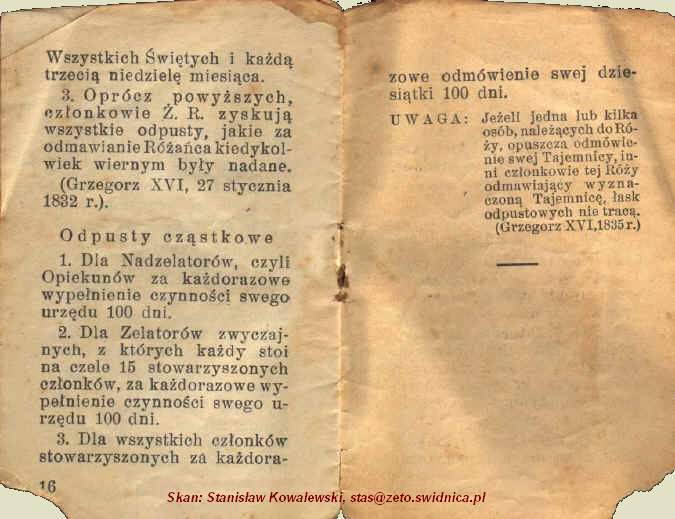 Wszystkich Świętych i każdą
trzecią niedzielę miesiąca.
3. Oprócz powyższych,
członkowie Ż. R. zyskują
wszystkie odpusty, jakie za
odmawianie Różańca kiedykol-
wiek wiernym były nadane.
(Grzegorz XVI, 27 stycznia
1832 r.).
Odpusty cząstkowe
1. Dla Nadzelatorów, czyli
Opiekunów za każdorazowe
wypełnienie czynności swego
urzędu 100 dni.
2. Dla Zelatorów zwyczaj-
nych, z których każdy stoi
na czele 15 stowarzyszonych
członków, za każdorazowe wy-
pełnienie czynności swego u-
rzędu 100 dni.
3. Dla wszystkich członków
stowarzyszonych za każdora-
16
zowe odmówienie swej dzie-
siątki 100 dni.
UWAGA: Jeżeli jedna lub kilka
osób, należących do Ró-
ży, opuszcza odmówie-
nie swej Tajemnicy, in-
ni członkowie tej Róży
odmawiający wyzna-
czoną Tajemnicę, łask
odpustowych nie tracą.
(Grzegorz XVI, 1835 r.)
Skan: Stanisław Kowalewski, stas@zeto.swidnica.pl